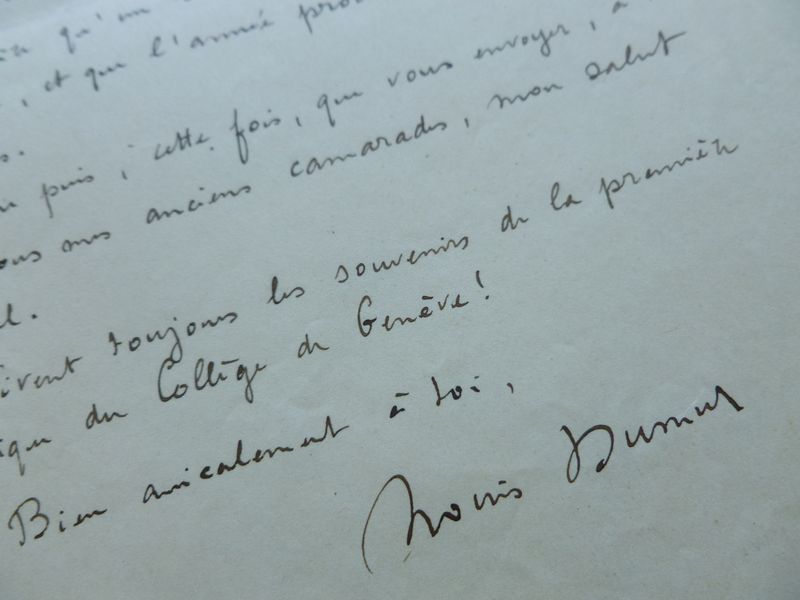 qu'un
, et que l'année
puis, cette fois, que vous envoyer, à
mes anciens camarades, mon salut
toujours les souvenirs de la première
du Collège de Genève!
Bien amicalement à toi,
Louis Dumur